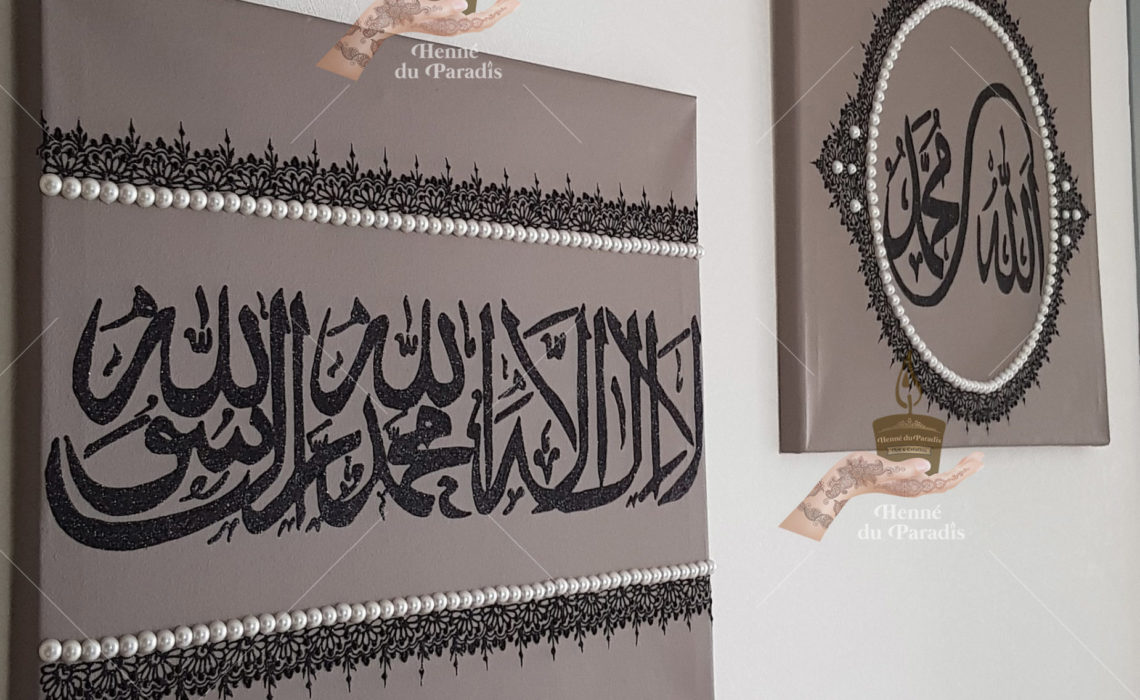 Henné
du Paradis
لا اله الا الله محمد رسول الله
الله محمد
Henné du Paradis
Henné
du Paradis